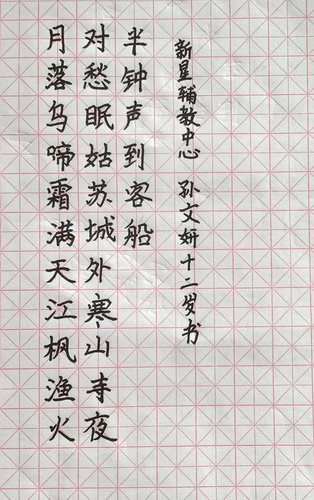 月落乌啼霜满天江枫渔火
对愁眠姑苏城外寒山寺夜
半钟声到客船
新星辅教中心 孙文妍十二岁书